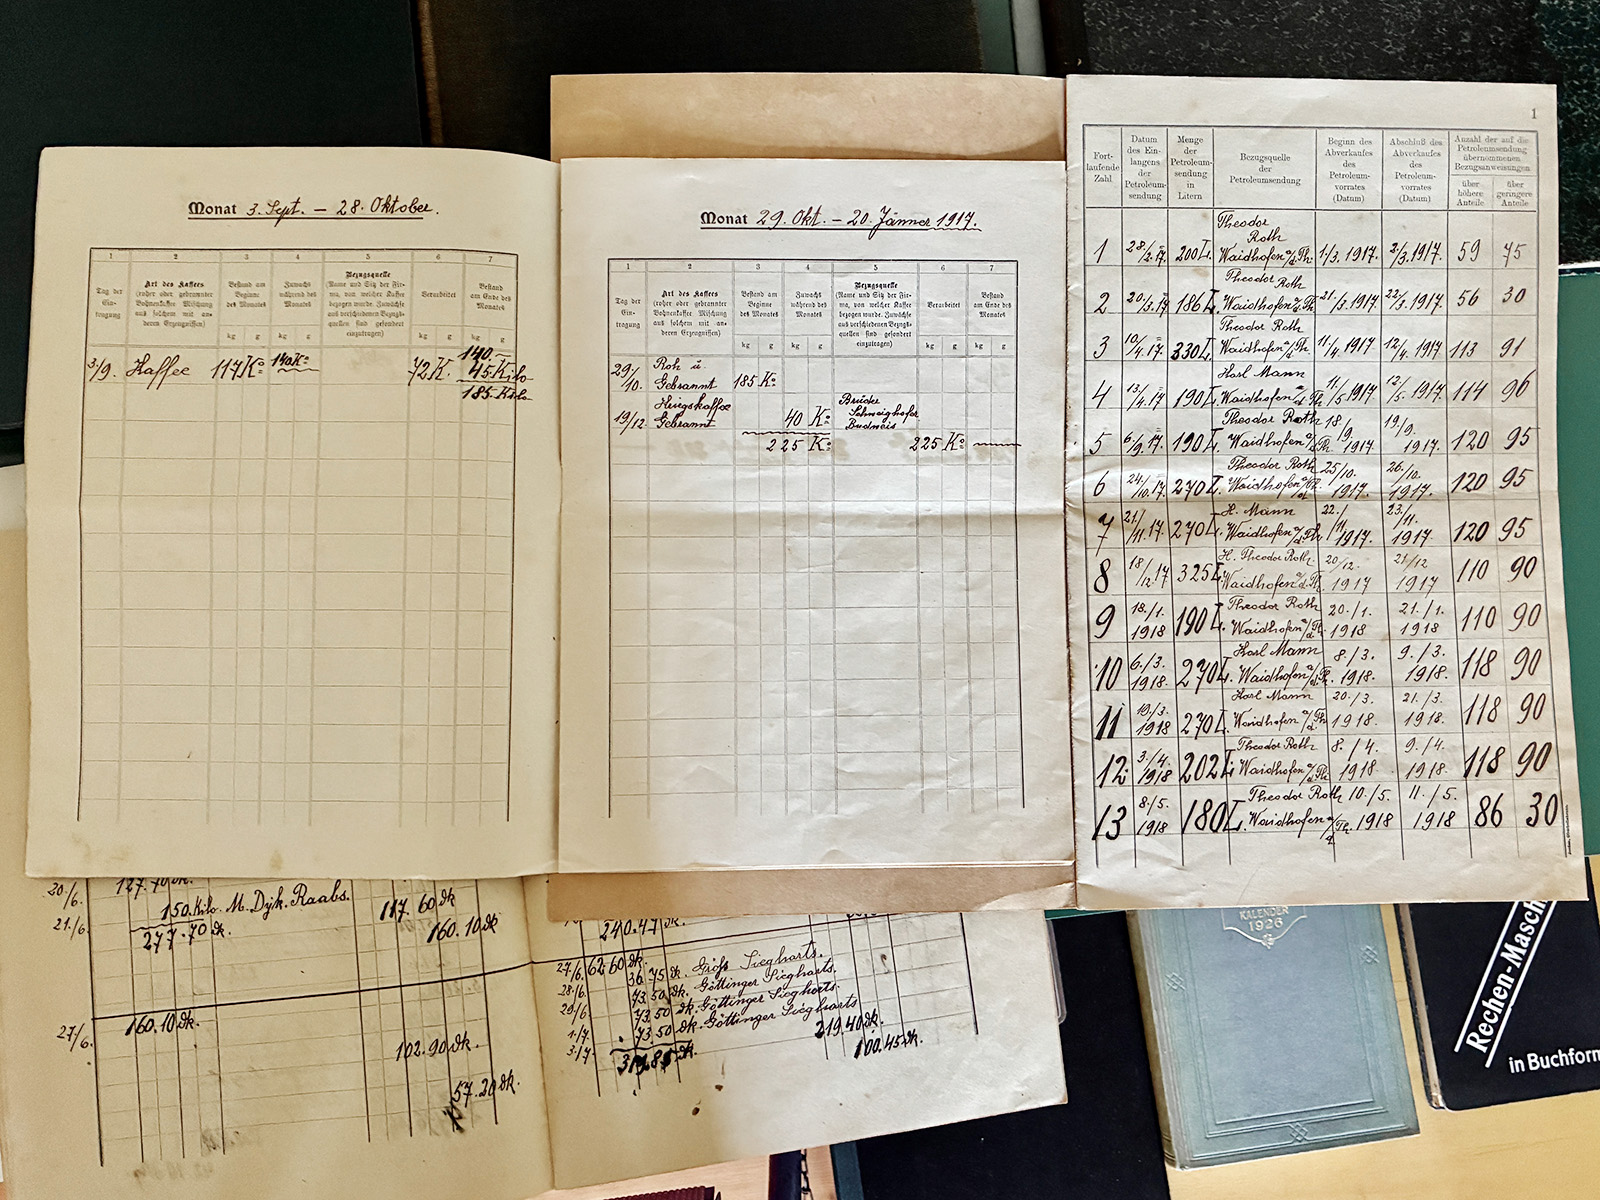 Monat 3. Sept. – 28. Oktober.
1 2 3 4 5 6 7
Tag der Ein-
tragung
Art des Kaffees
(roher oder gebrannter
Bohnenkaffee Mischung
aus solchem mit an-
deren Erzeugnissen)
Bestand am
Beginne
des Monates
Zuwachs
während des
Monates
Bezugsquelle
(Name und Sitz der Fir-
ma, von welcher Kaffee
bezogen wurde. Zuwächse
aus verschiedenen Bezugs-
quellen sind gesondert
einzutragen)
Verarbeitet
Bestand
am Ende des
Monates
kg g kg g kg g kg g
140.–
3/9. Kaffee 117 Ko 140 Ko 72 K. 45 Kilo
185 Kilo
Monat 29. Okt. – 20. Jänner 1917.
1 2 3 4 5 6 7
Tag der
Ein-
tragung
Art des Kaffees
(roher oder gebrannter
Bohnenkaffee Mischung
aus solchem mit an-
deren Erzeugnissen)
Bestand am
Beginne
des Monates
Zuwachs
während des
Monates
Bezugsquelle
(Name und Sitz der Fir-
ma, von welcher Kaffee
bezogen wurde. Zuwächse
aus verschiedenen Bezugs-
quellen sind gesondert
einzutragen)
Verarbeitet
Bestand
am Ende des
Monates
kg g kg g kg g kg g
29/10. Roh u.
Gebrannt 185 Ko
Kriegskaffee
19/12. Gebrannt 40 Ko Brüder
Schweighofer
Budweis
225 Ko 225 Ko
1
Fort-
laufende
Zahl
Datum
des Ein-
langens
der
Petroleum-
sendung
Menge
der
Petroleum-
sendung
in
Litern
Bezugsquelle
der
Petroleumsendung
Beginn des
Abverkaufes
des
Petroleum-
vorrates
(Datum)
Abschluß des
Abverkaufes
des
Petroleum-
vorrates
(Datum)
Anzahl der auf die
Petroleumsendung
übernommenen
Bezugsanweisungen
über
höhere
Anteile
über
geringere
Anteile
Theodor
Roth
1 28./2.17. 200 L. Waidhofen a/d. Th. 1/3. 1917. 2/3. 1917. 59 75
Theodor Roth
2 20/3.17 186 L. Waidhofen a/d Th 21/3. 1917 22/3. 1917. 56 30
Theodor Roth
3 10/4.17. 330 L. Waidhofen a/d Th. 11/4. 1917 12/4. 1917 113 91
Karl Mann
4 13/4.17 190 L Waidhofen a/d Th. 11./5 1917 12/5. 1917 114 96
Theodor Roth
5 6/9.17. 190 L. Waidhofen a/d Th. 18./9. 1917. 19/9. 1917. 120 95
Theodor Roth
6 24/10.17. 270 L. Waidhofen a/d Th. 25/10. 1917. 26./10. 1917. 120 95
H. Mann
7 21/11.17. 270 L. Waidhofen a/d Th 22./11 1917. 23./11. 1917. 120 95
H. Theodor Roth
8 18/12.17 325 L Waidhofen a/d. Th. 20/12. 1917 21/12 1917 110 90
Theodor Roth
9 18./1. 1918 190 L. Waidhofen a/d Th. 20./1. 1918 21./1. 1918 110 90
Karl Mann
10 6./3. 1918. 270 L. Waidhofen a/d Th. 8./3. 1918. 9./3. 1918. 118 90
Karl Mann
11 19./3. 1918 270 L. Waidhofen a/d Th 20./3 1918. 21./3. 1918. 118 90
Theodor Roth
12 3./4. 1918 202 L Waidhofen a/d Th 8./4. 1918 9./4. 1918. 118 90
Theodor Roth
13 8./5. 1918 180 L. Waidhofen a/d Th. 10./5. 1918 11./5. 1918 86 30
20./6. 127.70 dk.
150. Kilo M. Dyk. Raabs. 117.60 dk
21./6. 277.70 dk. 160.10 dk
27/6. 160.10 dk.
102.90 dk.
57.20 dk.
240.47 dk.
27/6. 62.60 dk.
36.75 dk. Größ Siegharts.
28./6. 73.50 dk. Göttinger Siegharts.
29/6. 73.50 dk. Göttinger Siegharts.
1./7. 73.50 dk. Göttinger Siegharts
3./7. 219.40 dk.
100.45 dk.
KALENDER
1926
Rechen-Masch
in Buchform